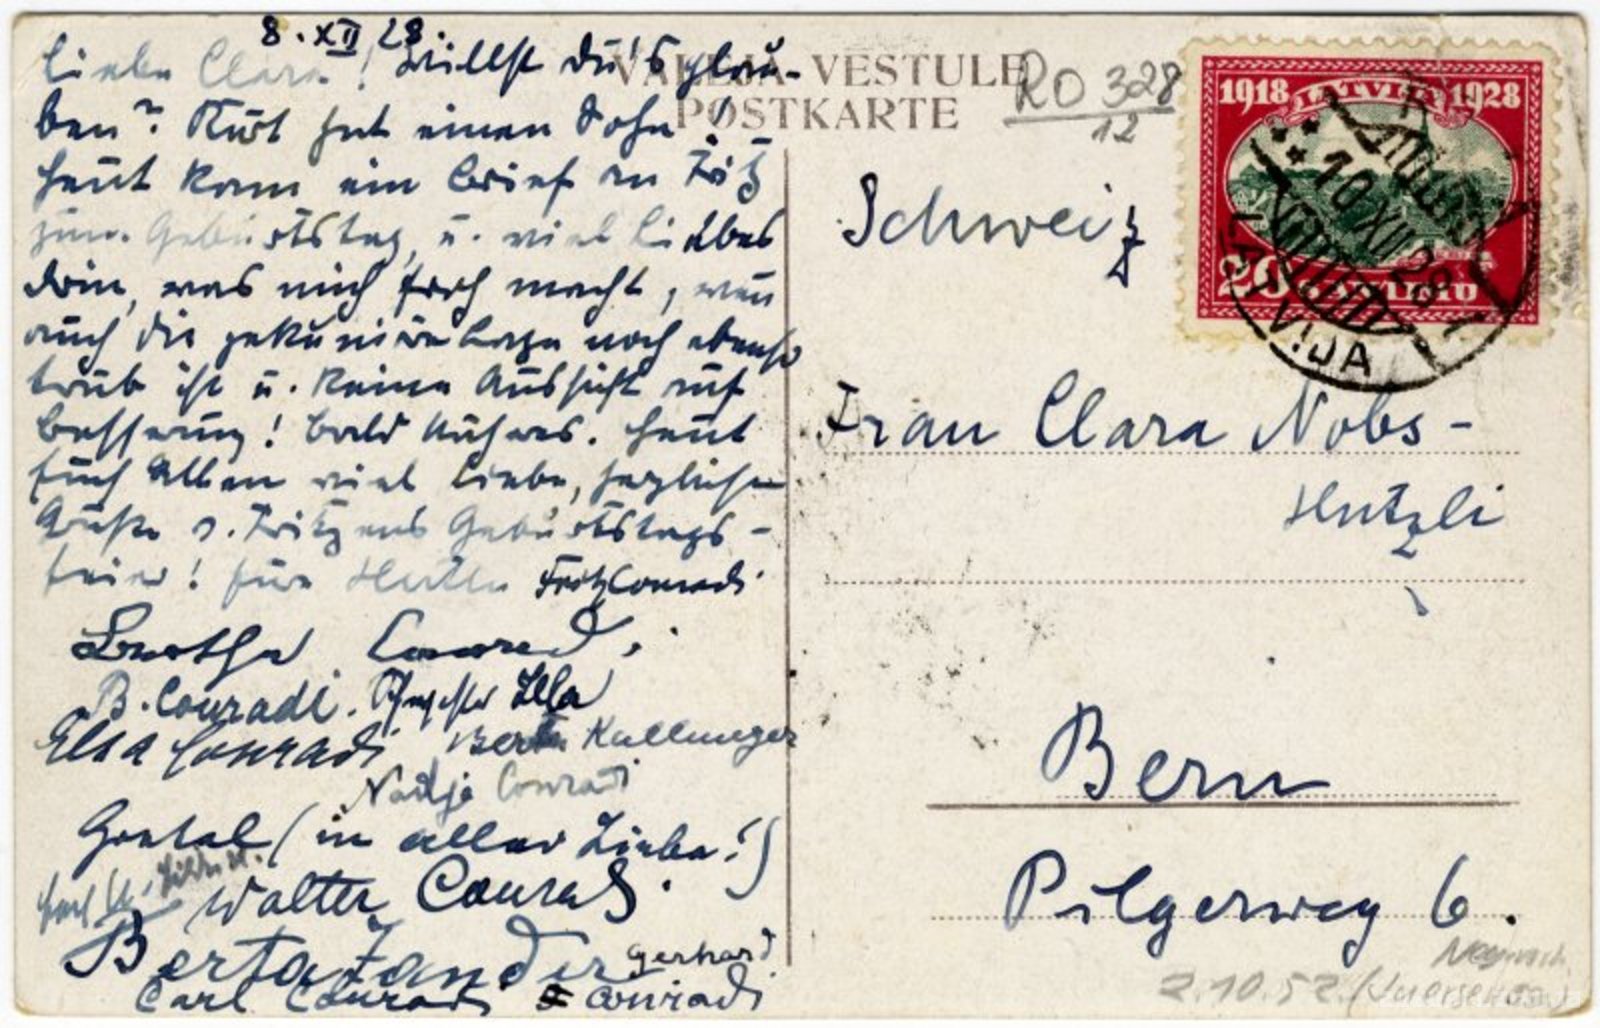 8. XII 28.
Liebe Clara! Willst du's glau-
ben? Kurt hat einen Sohn!
Heut kam ein Brief an Fritz
zum Geburtstag, u. viel Liebes
drin, was mich froh macht, wenn
auch die pekuniäre Lage noch ebenso
trüb ist u. keine Aussicht auf
Besserung! Bald Ausführl. Heut
Euch Allen viel Liebe, herzliche
Grüße v. Fritzens Geburtstags-
feier! Eure Fritz Conradi
Bertha Conradi.
B. Conradi. Schwester Lilla
Elsa Conradi Berta Kallmeyer
Nadja Conradi
Gretel (in aller Liebe!)
Walter Conradi.
Berta Zander Gerhard
Carl Conradi Conradi
VALEJĀ VESTULE
POSTKARTE
RO 328
12
1918 LATVIJA 1928
20 SANTIMU
10 XII 28
LATVIJA
Schweiz
Frau Clara Nobs-
Hutzli
Bern
Pilgerweg 6.
2.10.52.